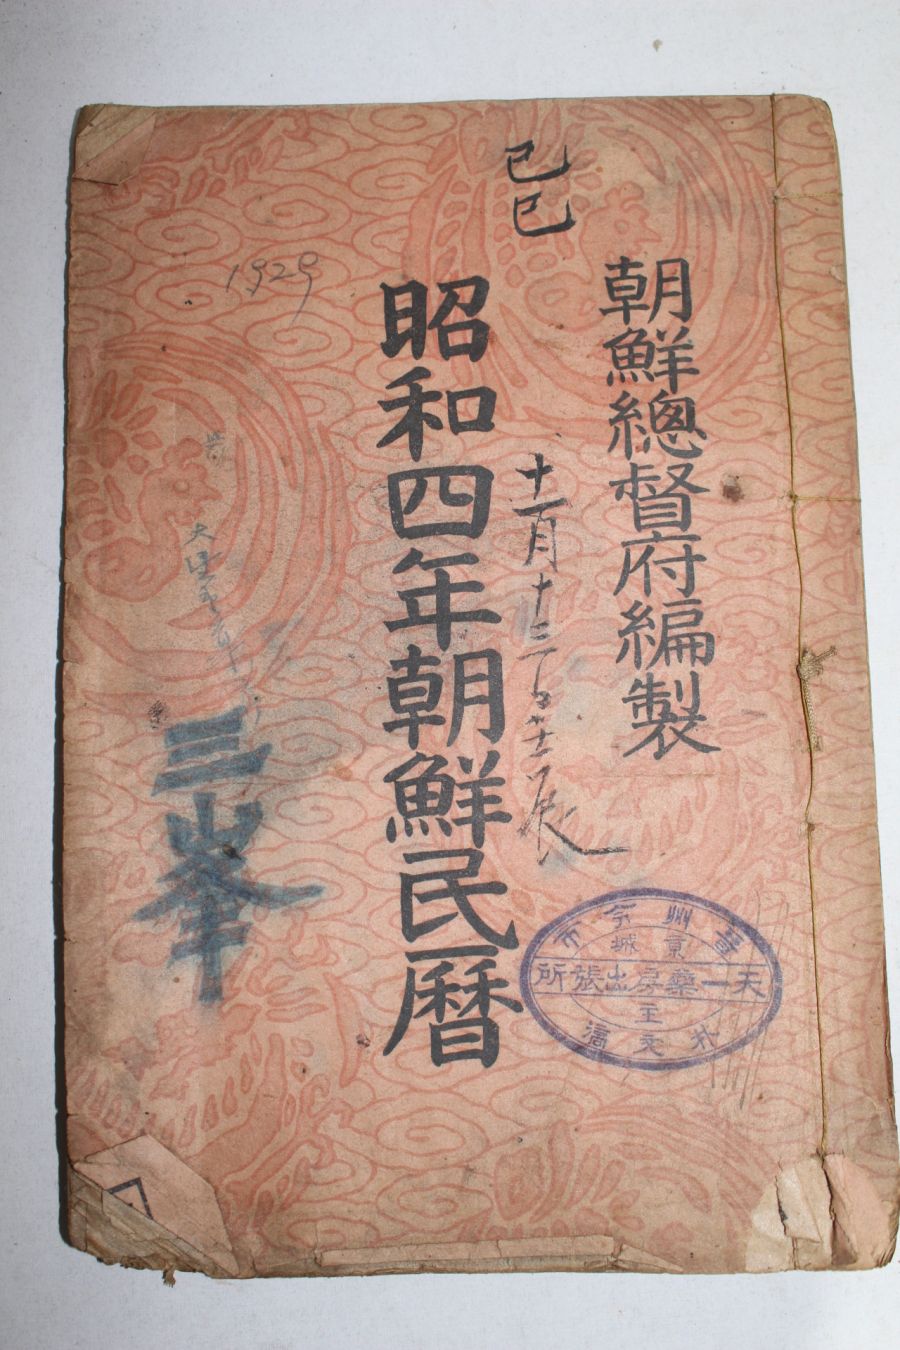 己巳
朝鮮總督府編製
昭和四年朝鮮民曆
1929
十一月十三日
三峯
市
州
京城
天一藥房出張所
主
朴文